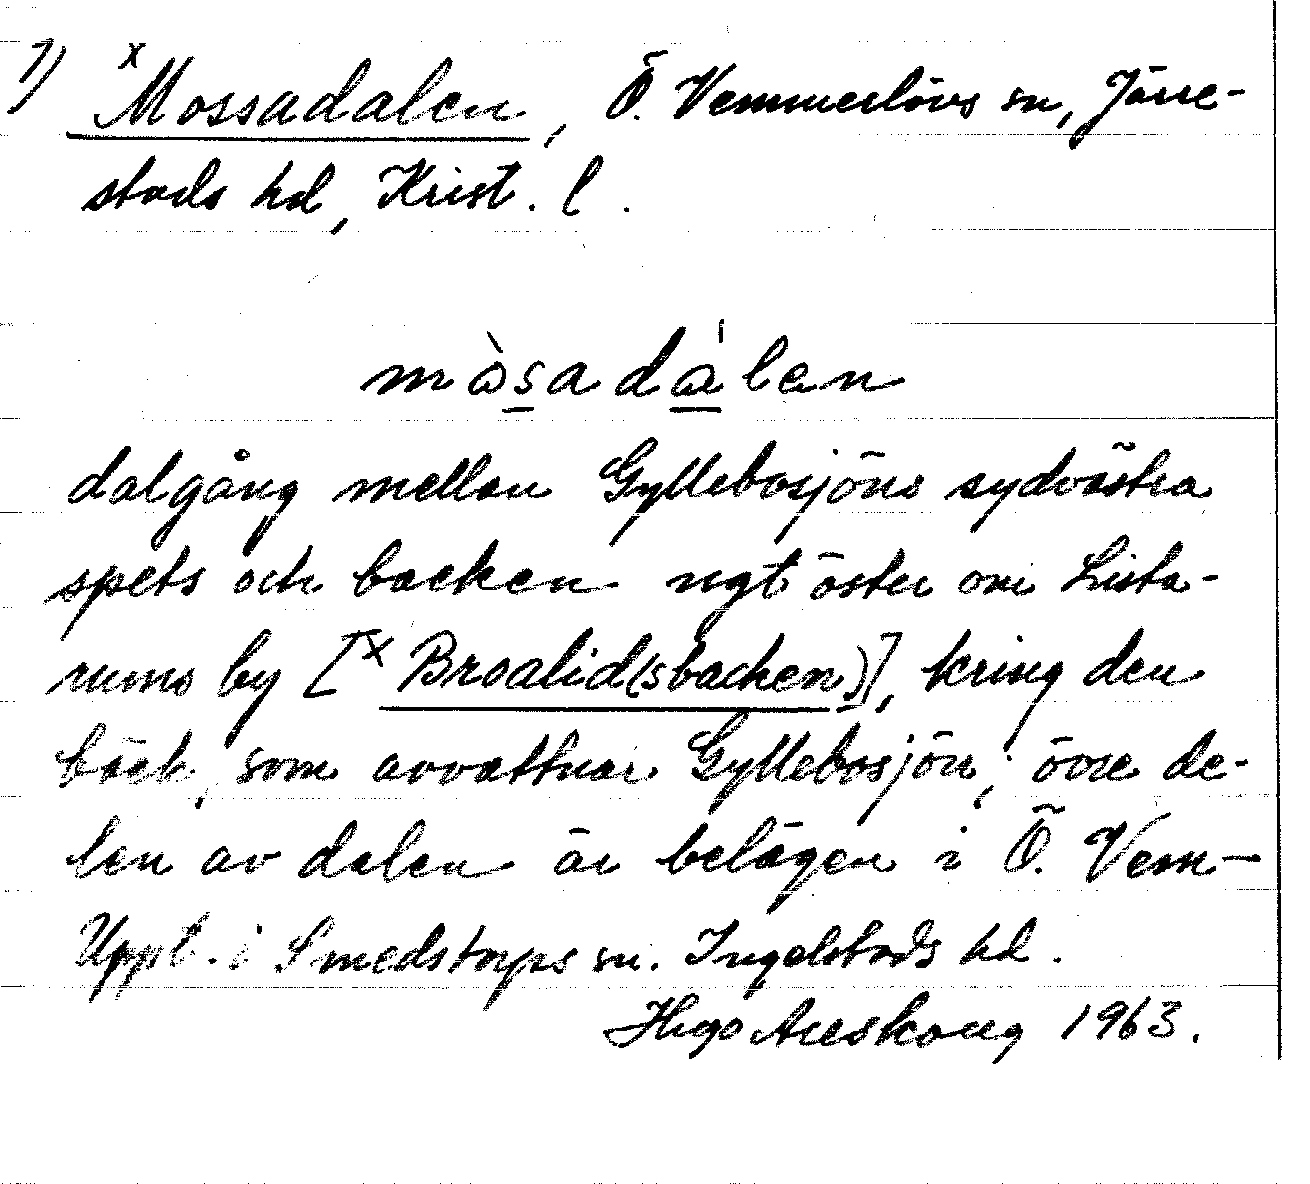 7) x Mossadalen, Ö. Vemmerlövs sn, Järre-
stads hd, Krist. l.
mòsadálen
dalgång mellan Gyllebosjöns sydvästra
spets och backen ngt öster om Lista-
rums by [x Broalid(sbacken)], kring den
bäck, som avvattnar Gyllebosjön; övre de-
len av dalen är belägen i Ö. Vem-
Uppt. i Smedstorps sn. Ingelstads hd.
Hugo Areskoug 1963.